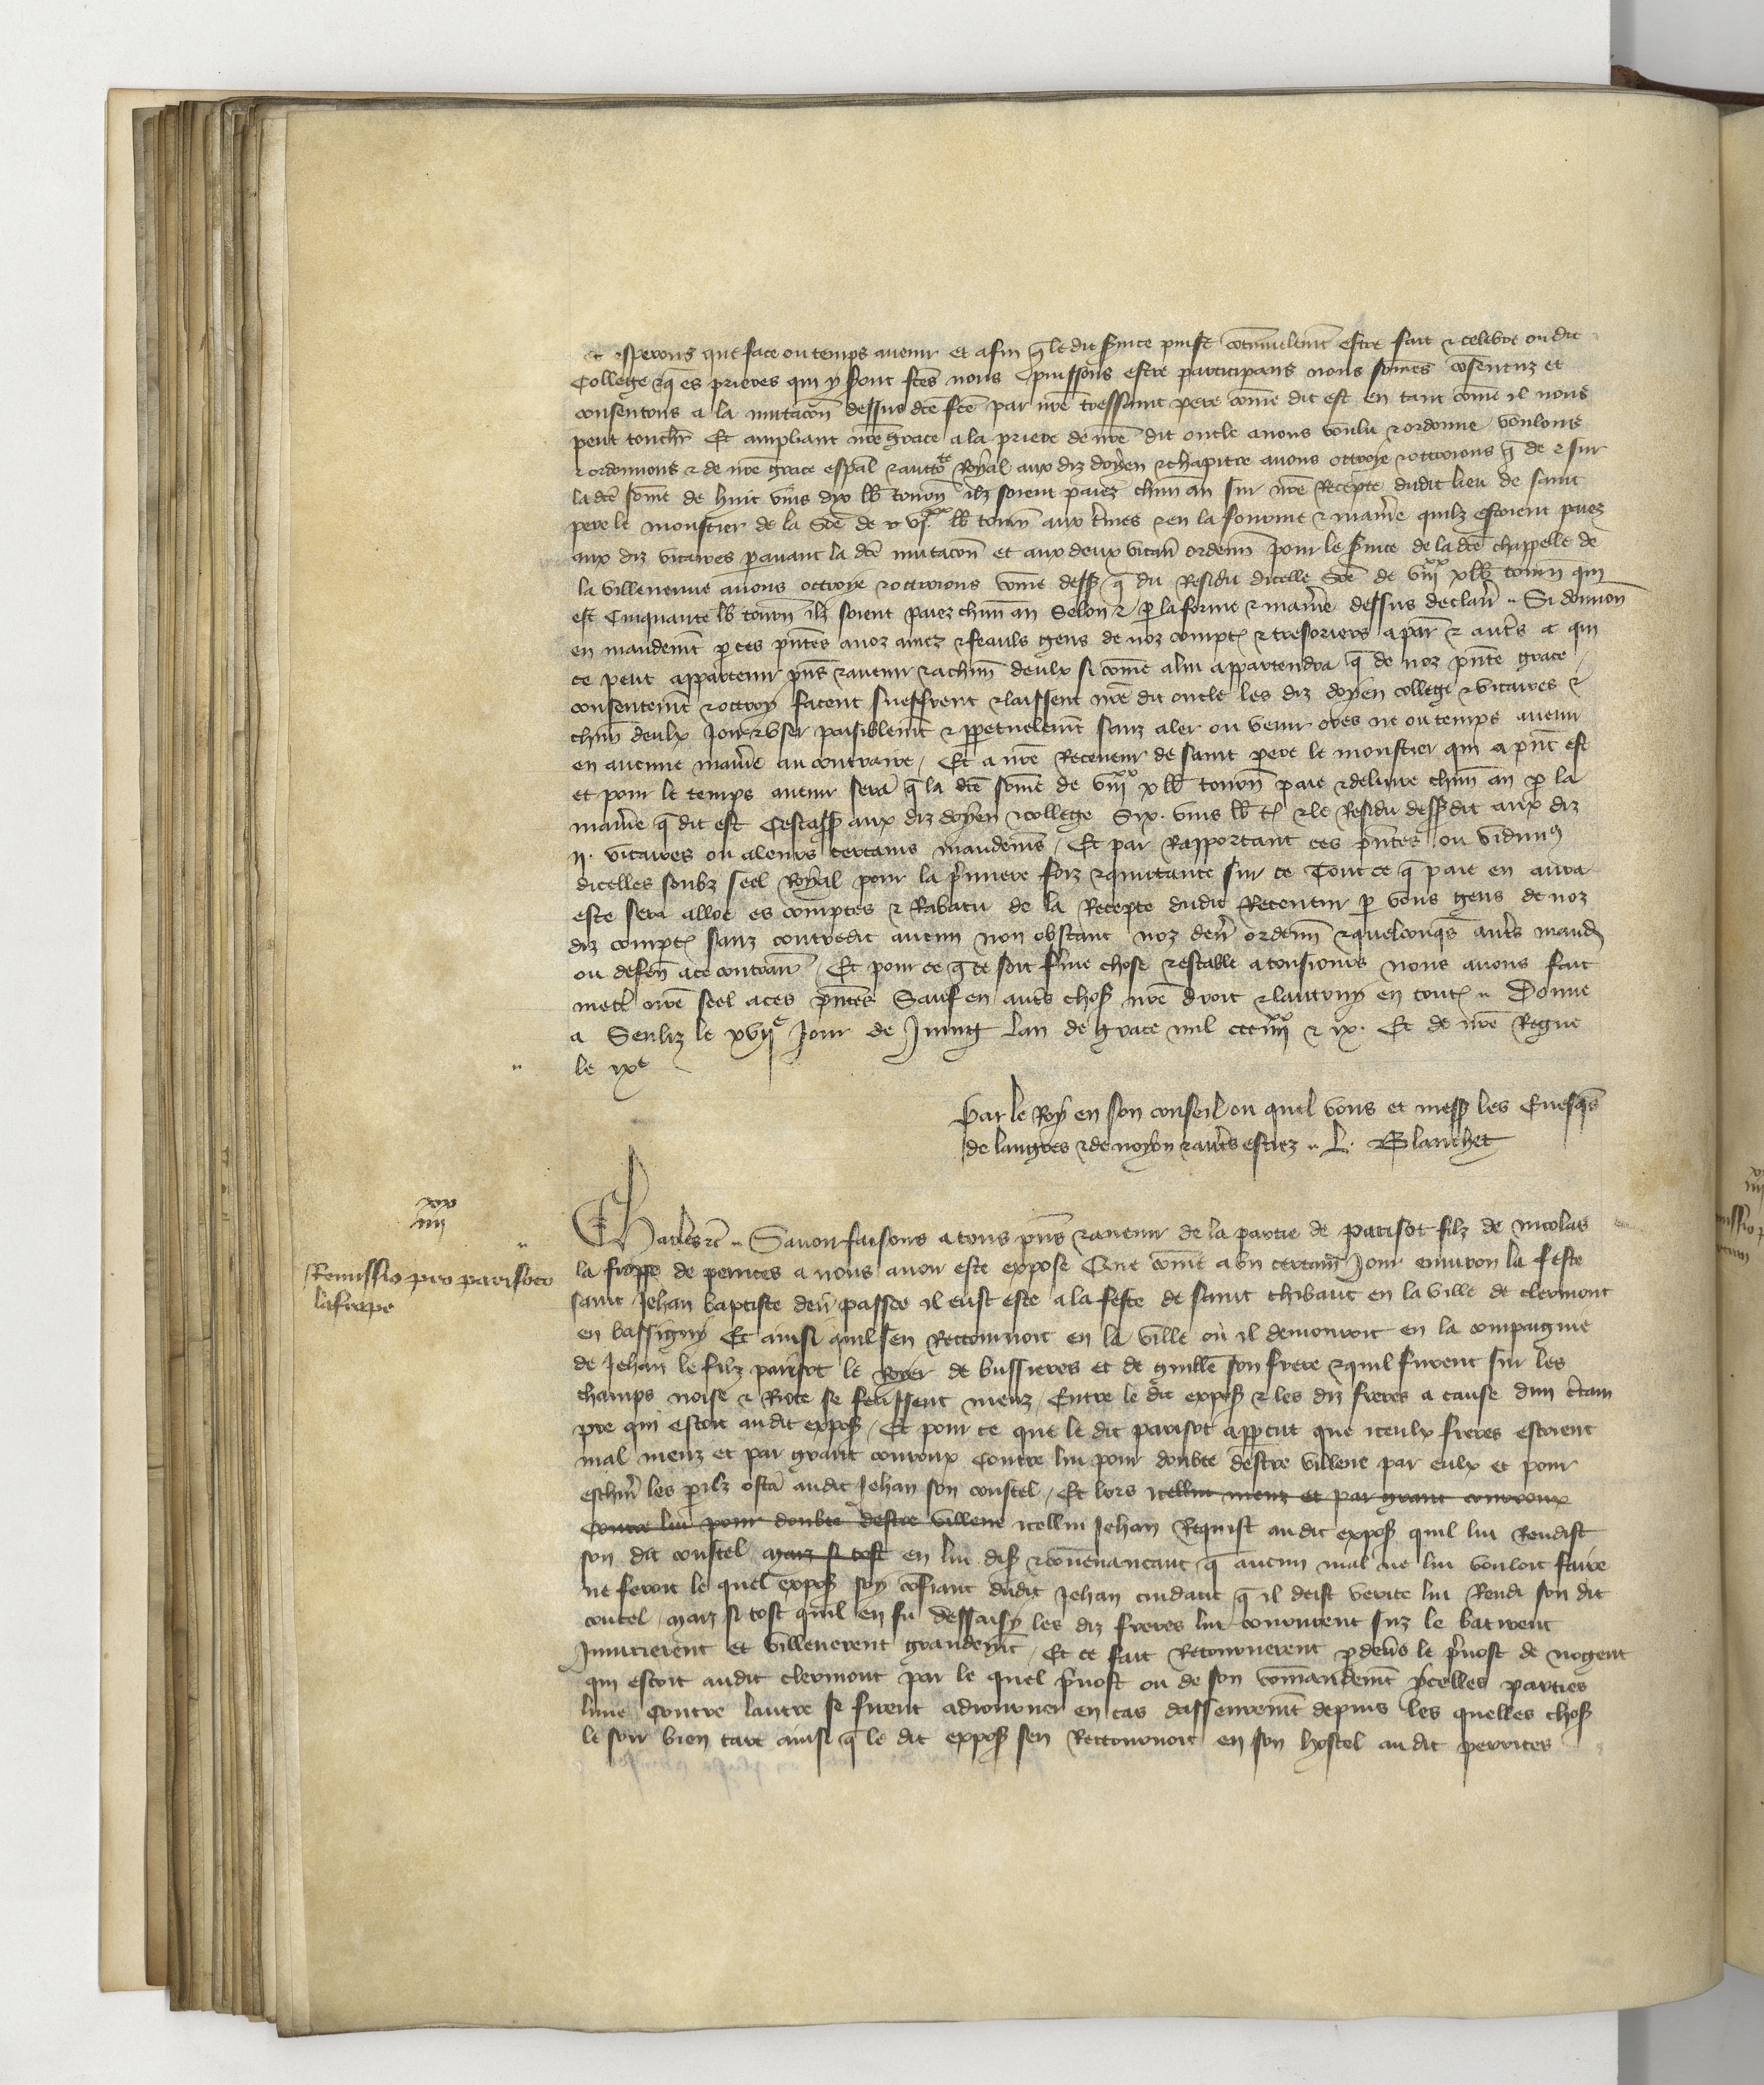 et esperons que face ou temps avenir et afin q̃ le dit s̃vice puisse cõtinuelem̃t estre fait & celebre ou dit
College & q̃ es prieres qui y s̃ont ftẽs nous puissons estre participans nous sommes cõsentuz et
consentons a la mutacõn dessus dcẽ fcẽ par nr̃e tressaint pere com̃e dit est en tant com̃e il nous
peut touchr̃ Et ampliant nr̃e grace a la priere de nr̃e dit oncle avons voulu & ordonne voulons
& ordonnons & de nr̃e grace esp̃al & auctoᵗᵉ Royal aux diz doyen & chapitre avons ottroye & ottroions q̃ de & sur
la dcẽ som̃e de huit vins dix lb̃ tourñ ilz soient paiez chun̄ an sur nr̃e Recepte dudit lieu de saint
pere le moustier de la som̃e de vjˣˣ lb̃ tourñ aux t̃mes & en la fourme & manr̃e quilz estoient paiez
aux diz vicaires p̱avant la dcẽ mutacõn et aux deux vicair̃ ordenn̄ pour le s̃vice de la dcẽ chappelle de
la villeneuve avons ottroye & ottroions com̃e dess̃ q̃ du Residu dicelle som̃e de viijˣˣ x lb̃ tourñ qui
est Cinquante lb̃ tourñ ilz soient paiez chun̄ an Selon & p̱ la forme & manr̃e dessus declair̃ Si donnon̄
en mandem̃t p̱ ces pñtes a noz amez & feauls gens de noz compt̃ & tresoriers a par̃ & autr̃s a qui
ce peut appartenir pñs & avenir & a chun̄ deulx si com̃e a lui appartendra q̃ de noz pñte grace
consentem̃t & ottroy facent sueffrent & laissent nr̃e dit oncle les diz doyen college & vicaires &
chun̄ deulx Joir & user paisiblem̃t & p̱petuelem̃t sanz aler ou venir ores ne ou temps avenir
en aucune manr̃e au contraire / Et a nr̃e Receveur de saint pere le moustier qui a pñt est
et pour le temps avenir sera q̃ la dcẽ som̃e de viijˣˣ x lb̃ tourñ paie & delivre chun̄ an p̱ la
manr̃e q̃ dit est Cestass̃ aux diz doyen & college Six . vins lb̃ t̃ & le Residu dess̃ dit aux diz
ij . vicaires ou a leurs certains mandem̃s / Et par Rapportant ces pñtes ou vidimꝰ
dicelles soubz seel Royal pour la p̃miere foiz & quittance sur ce Tout ce q̃ paie en aura
este sera alloe es comptes & Rabatu de la Recepte dudit Receveur p̱ vous gens de noz
diz compt̃ sanz contredit aucun non obstant noz den̄r̃ ordenn̄ & quelconq̃s autr̃s mand̃
ou defen̄ a ce contrair̃ / Et pour ce q̃ ce soit f̃me chose & estable a tousiours nous avons fait
mettr̃ nr̃e seel a ces pñtes Sauf en autr̃s chos̃ nr̃e droit & lautruy en tout̃ Donne
a Senliz le xvijᵉ Jour de Juing lan de grace mil ccc iiijˣˣ & ix . Et de nr̃e Regne
le ixᵉ
Par le Roy en son conseil ou quel vous et mess̃ les Evesq̃s
de langres & de noyon & autr̃s estiez .. L . Blanchet
xxx
iiij
Charles &c̃ .. Savoir faisons a tous pñs & avenir de la partie de parisot filz de nicolas
Remissio pro parisoto
lafrape
la frappe de perrices a nous avoir este expose Que com̃e a un certain Jour environ la feste
saint Jehan baptiste den̄r̃ passee il eust este a la feste de saint thibaut en la ville de clermont
en bassigny Et ainsi quil sen Retournoit en la ville ou il demouroit en la compaignie
de Jehan le filz parisot le Royer de bussieres et de guillẽ son frere & quil furent sur les
champs noise & Riote se feussent meuz / Entre le dit expos̃ & les diz freres a cause dun c̃tain
pre qui estoit au dit expos̃ / Et pour ce que le dit parisot app̱cut que iceulx freres estoient
mal meuz et par grant courroux Contre lui pour doubte destre villene par eulx et pour
eschiv̄ les p̱ilz osta au dit Jehan son coustel / Et lors icellui meuz et par grant courroux
Contre lui pour doubte destre villene icellui Jehan Requist au dit expos̃ quil lui Rendist
son dit coustel maiz si tost en lui dis̃ & convenancant q̃ aucun mal ne lui vouloit faire
ne feroit le quel expos̃ soy cõfiant dudit Jehan cuidant q̃ il deist verite lui Rendi son dit
coutel / maiz si tost quil en fu dessaisy les diz freres lui coururent suz le batirent
Iniurierent et villenerent grandem̃t / Et ce fait Retournerent p̱ devers le p̃vost de nogent
qui estoit au dit clermont par le quel p̃vost ou de son commandem̃t ycelles parties
lune Contre lautre se firent adiourner en cas dasseurem̃t depuis les quelles chos̃
le soir bien tart ainsi q̃ le dit expos̃ sen Retournoit en son hostel au dit perrices